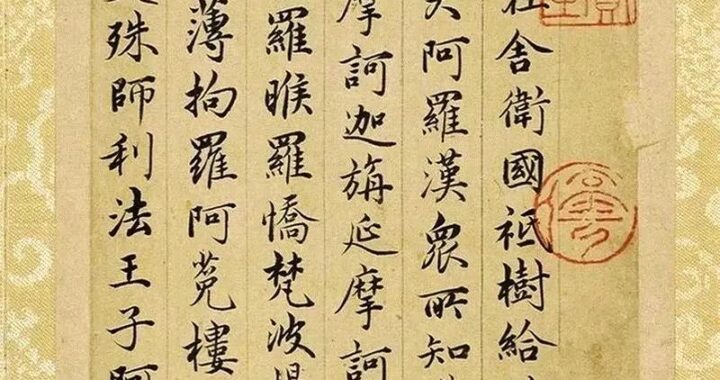 舍衛國祇樹給
大阿羅漢眾所知
摩訶迦旃延摩訶
羅睺羅憍梵波
薄拘羅阿莬樓
殊師利法王子阿